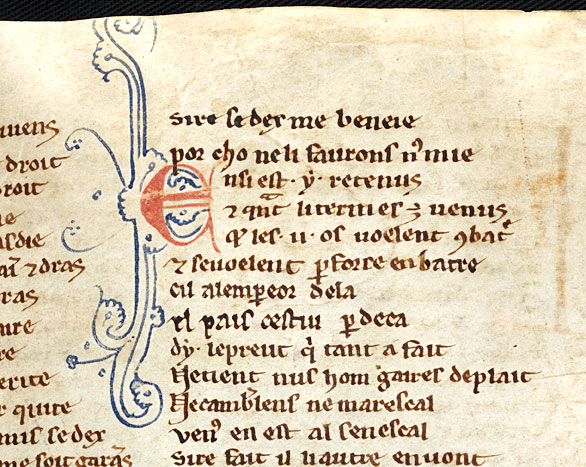 uuens
droit
roit
ie
asdie
dras
ras
aire
re
erite
r quite
mis se dex
me soit garas
sire se dex me beneie
por cho ne li faurons nꝰ mie
Ensi est · y · retenus
⁊ qᵃnt li termes ē venus
qͥ les · ii · os voelent ꝯbatͬ
⁊ se voelent ꝑ force enbatre
cil a lempeor de la
el pais cestui ꝑ deca
dy · le preut qͥ tant a fait
Ne tient nus hom gaires de plait
Ne cambͬlens ne marescal
venꝰ en est al senescal
sire fait il li autre en vont